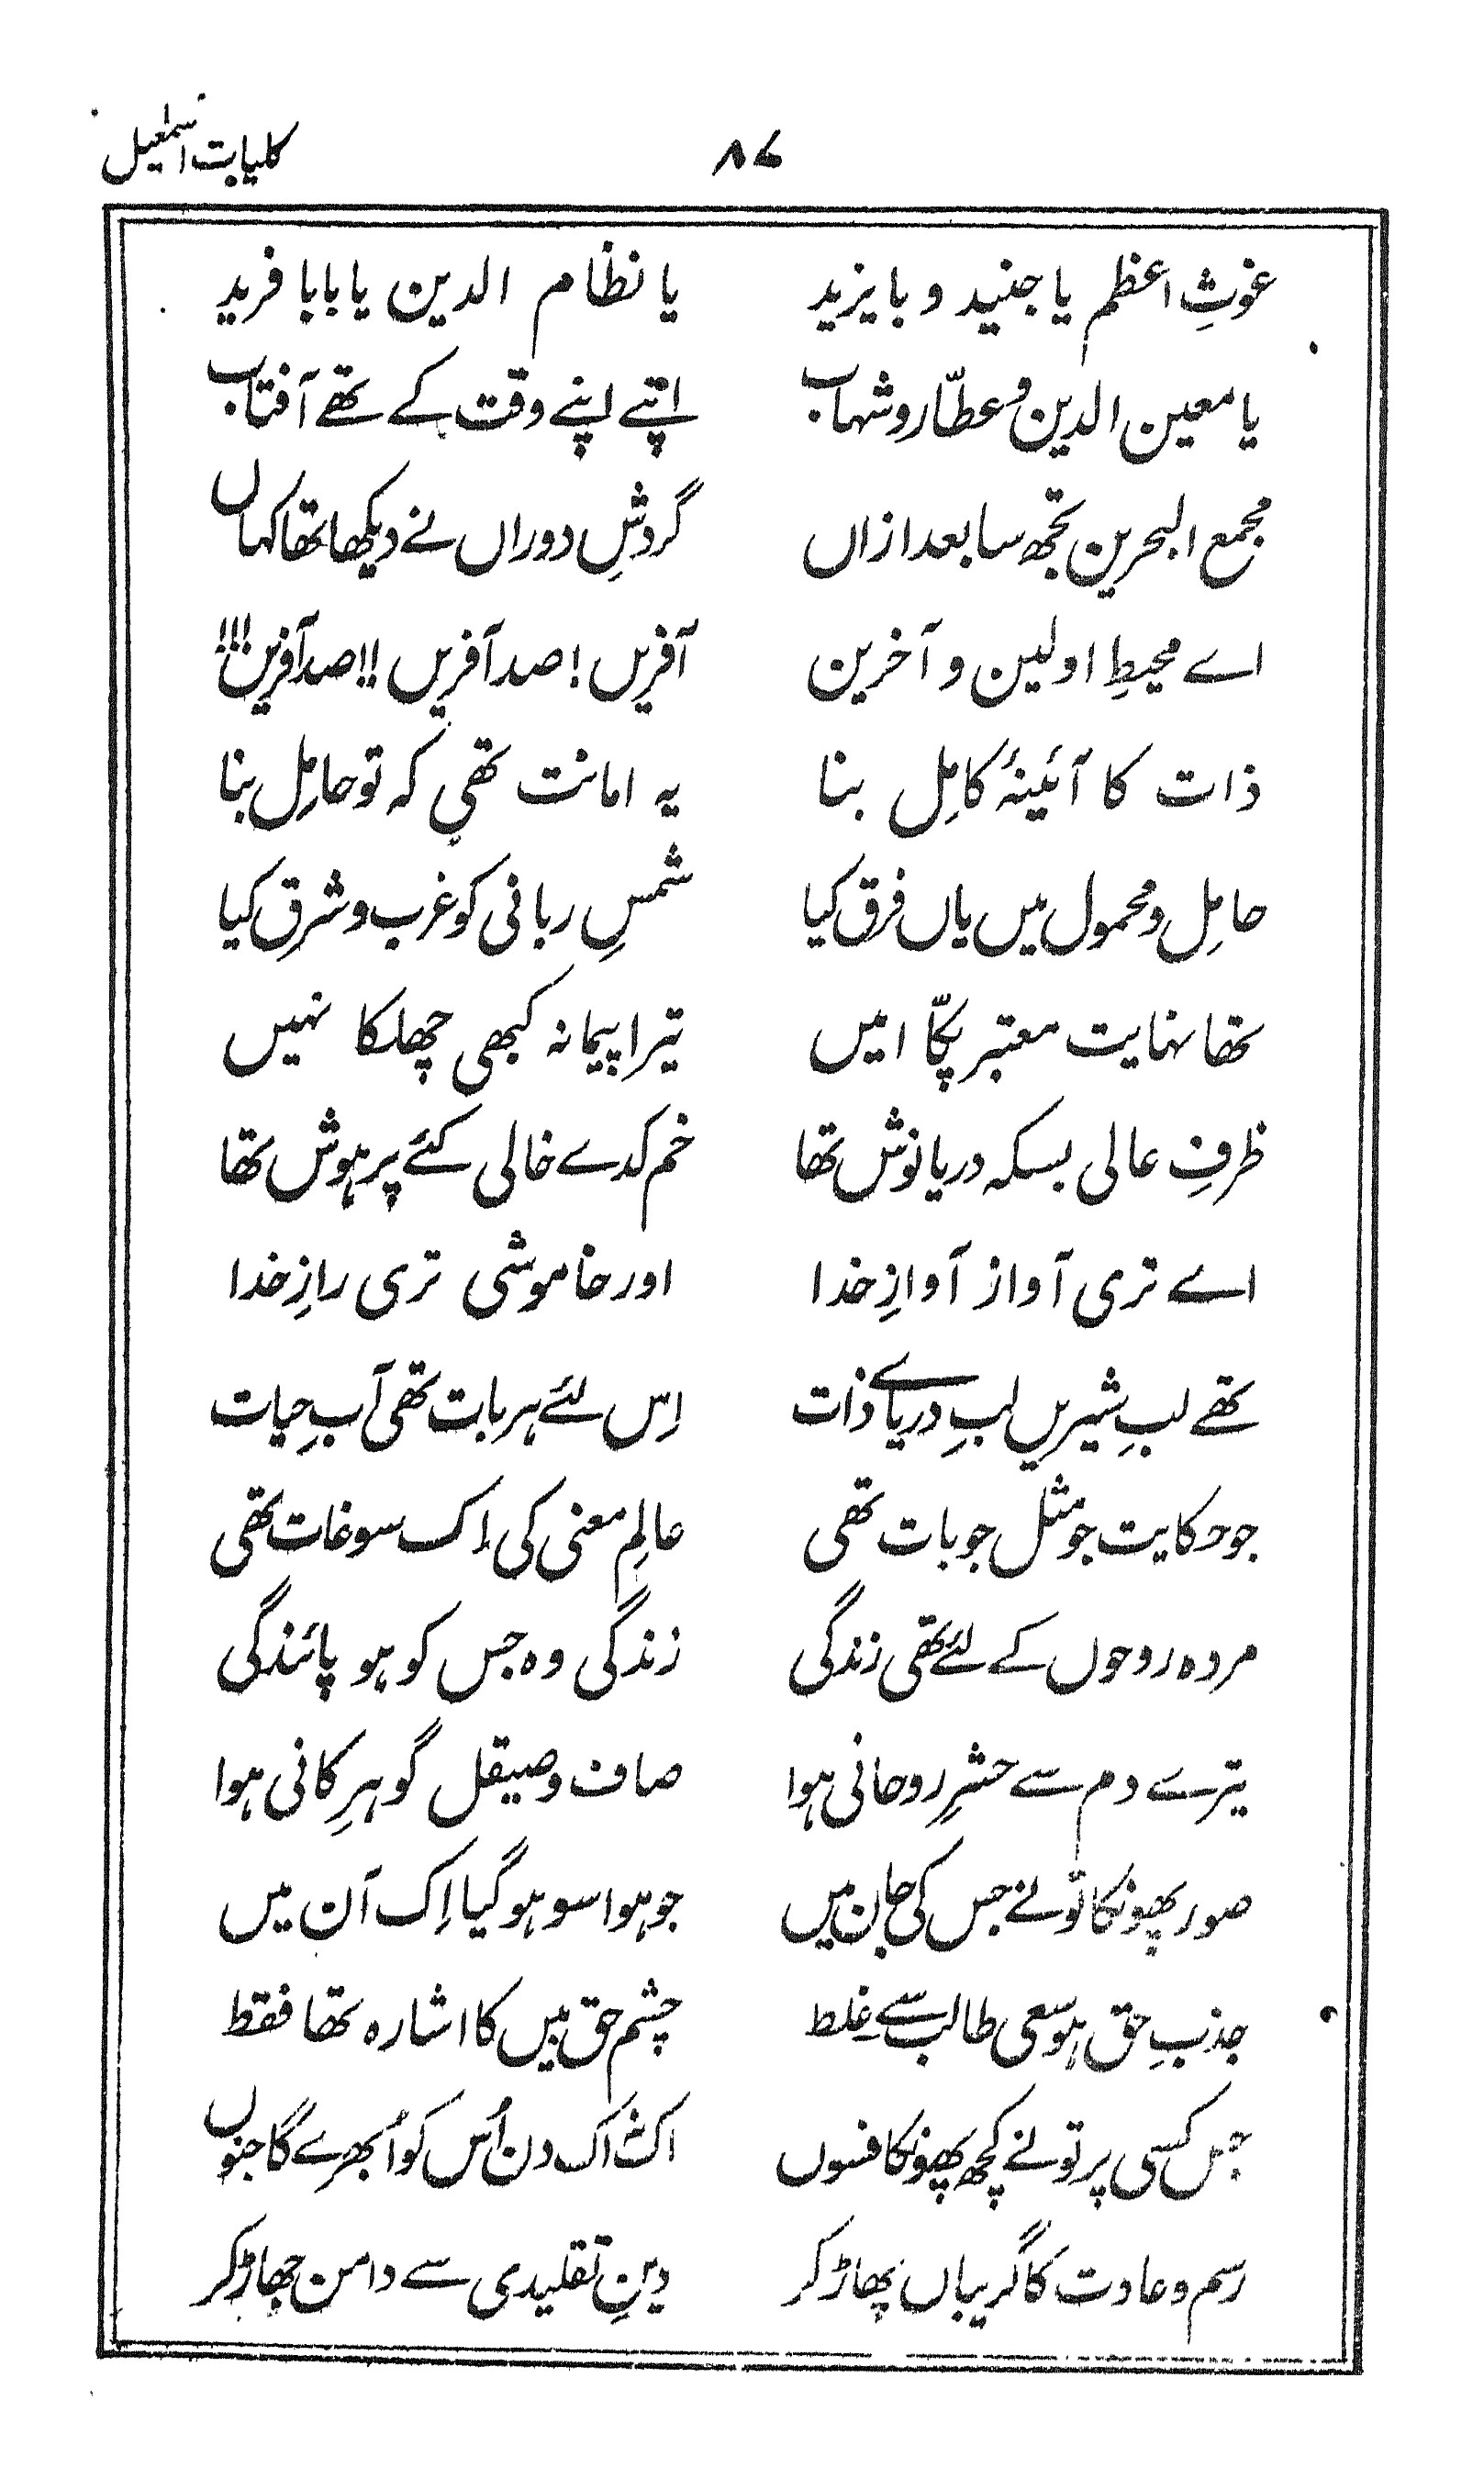 کلیات اسمٰعیل ۸۷
غوثِ اعظم یا جنید و بایزید یا نظام الدین یا بابا فرید
یا معین الدین و عطّار و شہاب اپنے اپنے وقت کے تھے آفتاب
مجمع البحرین تجھ سا بعد ازاں گردشِ دوراں نے دیکھا تھا کہاں
اے محیطِ اولین و آخرین آفریں! صد آفریں!! صد آفریں!!!
ذات کا آئینۂ کامِل بنا یہ امانت تھی کہ تو حامِل بنا
حامِل و محمول میں یاں فرق کیا شمسِ ربانی کو غرب و شرق کیا
تھا نہایت معتبر پکّا امیں تیرا پیمانہ کبھی چھلکا نہیں
ظرفِ عالی بسکہ دریا نوش تھا خم کدے خالی کئے پر ہوش تھا
اے تری آواز آوازِ خدا اور خاموشی تری رازِ خدا
تھے لبِ شیریں لبِ دریاے ذات اِس لئے ہر بات تھی آبِ حیات
جو حکایت جو مثل جو بات تھی عالمِ معنی کی اِک سوغات تھی
مردہ روحوں کے لئے تھی زندگی زندگی وہ جس کو ہو پائندگی
تیرے دم سے حشرِ روحانی ہوا صاف و صیقل گوہرِ کانی ہوا
صور پھونکا تونے جس کی جان میں جو ہوا سو ہو گیا اِک آن میں
جذبِ حق ہو سعی طالب سے غِلط چشمِ حق بیں کا اشارہ تھا فقط
جس کسی پر تونے کچھ پھونکا فسوں اک نہ اک دن اُس کو اُبھرے گا جنوں
رسم و عادت کا گریباں پھاڑ کر دینِ تقلیدی سے دامن جھاڑ کر